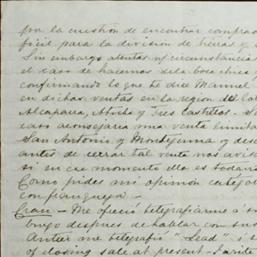 por la cuestion de encontrar comprad
fícil para la division de tierras y
Sin embargo atentas ntras circunstancias
el caso de hacernos de la bose
confirmando lo que te dice Manuel
en dichas ventas en la region del Col
Alcaparra, Abrila y Tres Castillos. S
caso aconsejaria una venta limita
San Antonio y Moctezuma y des
antes de cerrar tal venta nos avis
si en ese momento ella es todavia
Como pides mi opinion
con franqueza.-
Creau - Me ofreció telegrafiarme á su
burgo despues de hablar con su
Anteer me telegrafió "Lead" i
of closing sale at present - I write